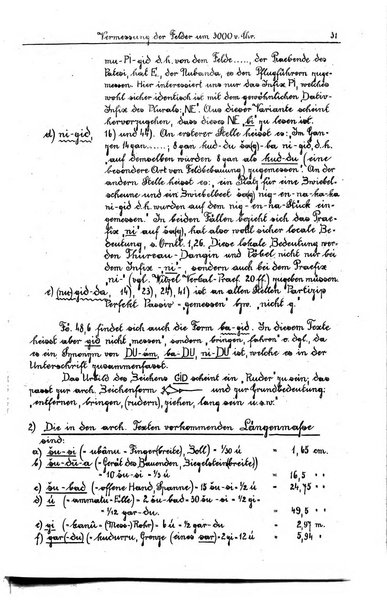 Vermessung der Felder um 3000 v. Chr. 31
mu-PI-gid d.h. von dem Felde....., der Trabende des
Patesi, hat E., der Nubanda, es den Pflugführern zuge-
messen. Hier interessiert uns nur das Infix PI, welches
wohl sicher identisch ist mit dem gewöhnlichen Dativ-
Infix des Plurals: NE. Aus dieser Variante scheint
hervorzugehen, dass dieses NE bi zu lesen ist.
d) ni-gid, 16) und 44). An ersterer Stelle heisst es: "Im Gan-
zen 14 gan....., 8 gan kud-du sag ba ni-gid, d.h.
"auf demselben wurden 8 gan als kud-du (eine
besondere Art von Feldbebauung) zugemessen". An der
andern Stelle heisst es: "ein Platz für eine Zwiebel-
scheune und ein Zwiebelbeet sag nig-en-na-ka-ka
ni-gid d.h. wurden auf dem nig-en-na-Stück ein-
gemessen". In beiden Fällen bezieht sich das Prae-
fix ni auf sag, hat also wohl sicher locale Be-
deutung, s. Orntl. 1,26. Diese locale Bedeutung wer-
den Thureau-Dangin und Pöbel nicht nur bei
dem Infix -ni-, sondern auch bei dem Praefix
"ni" (vgl. Witzel Verbal-Praef. 20 ff.) zugeben müssen
e) (nu) gid-da, 14), 23), 24), 41) ist an allen Stellen Partizip
Perfekt Passiv = "gemessen" bzw. "nicht g."
Fö. 48,6 findet sich auch die Form ba-gid. In diesem Texte
heisst aber gid nicht "messen", sondern "bringen, fahren" o. dgl., da
es ein Synonym von DU-ám ba-DU, ni-DU ist, welche es in der
Unterschrift zusammenfasst.
Das Urbild des Zeichens GID scheint ein "Ruder" zu sein; das
passt zur arch. Zeichenform und zur Grundbedeutung:
"entfernen, bringen, (rudern), ziehen, lang sein u.s.w."
2) Die in den arch. Texten vorkommenden Längenmasse
sind:
a) šu-si (= ubânu = Finger(breite), Zoll) = 1/30 ú = 1,65 cm.
b) šu-dù-a (= Gerät des Bauenden, Ziegelstein(breite))
= 10 šu-si = 1/3 ú = 16,5 "
c) šu-bad (= offene Hand, Spanne) = 15 šu-si = 1/2 ú = 24,75 "
d) ú (= ammatu = Elle) = 2 šu-bad = 30 šu-si = 1/2 gi =
= 1/12 gar-du. = 49,5 "
e) gi (= kanû = (Mess-)Rohr) = 6 ú = 1/2 gar-du = 2,97 m.
f) gar-du(= kudurru, Grenze (eines sar) = 2 gi = 12 ú = 5,94 "